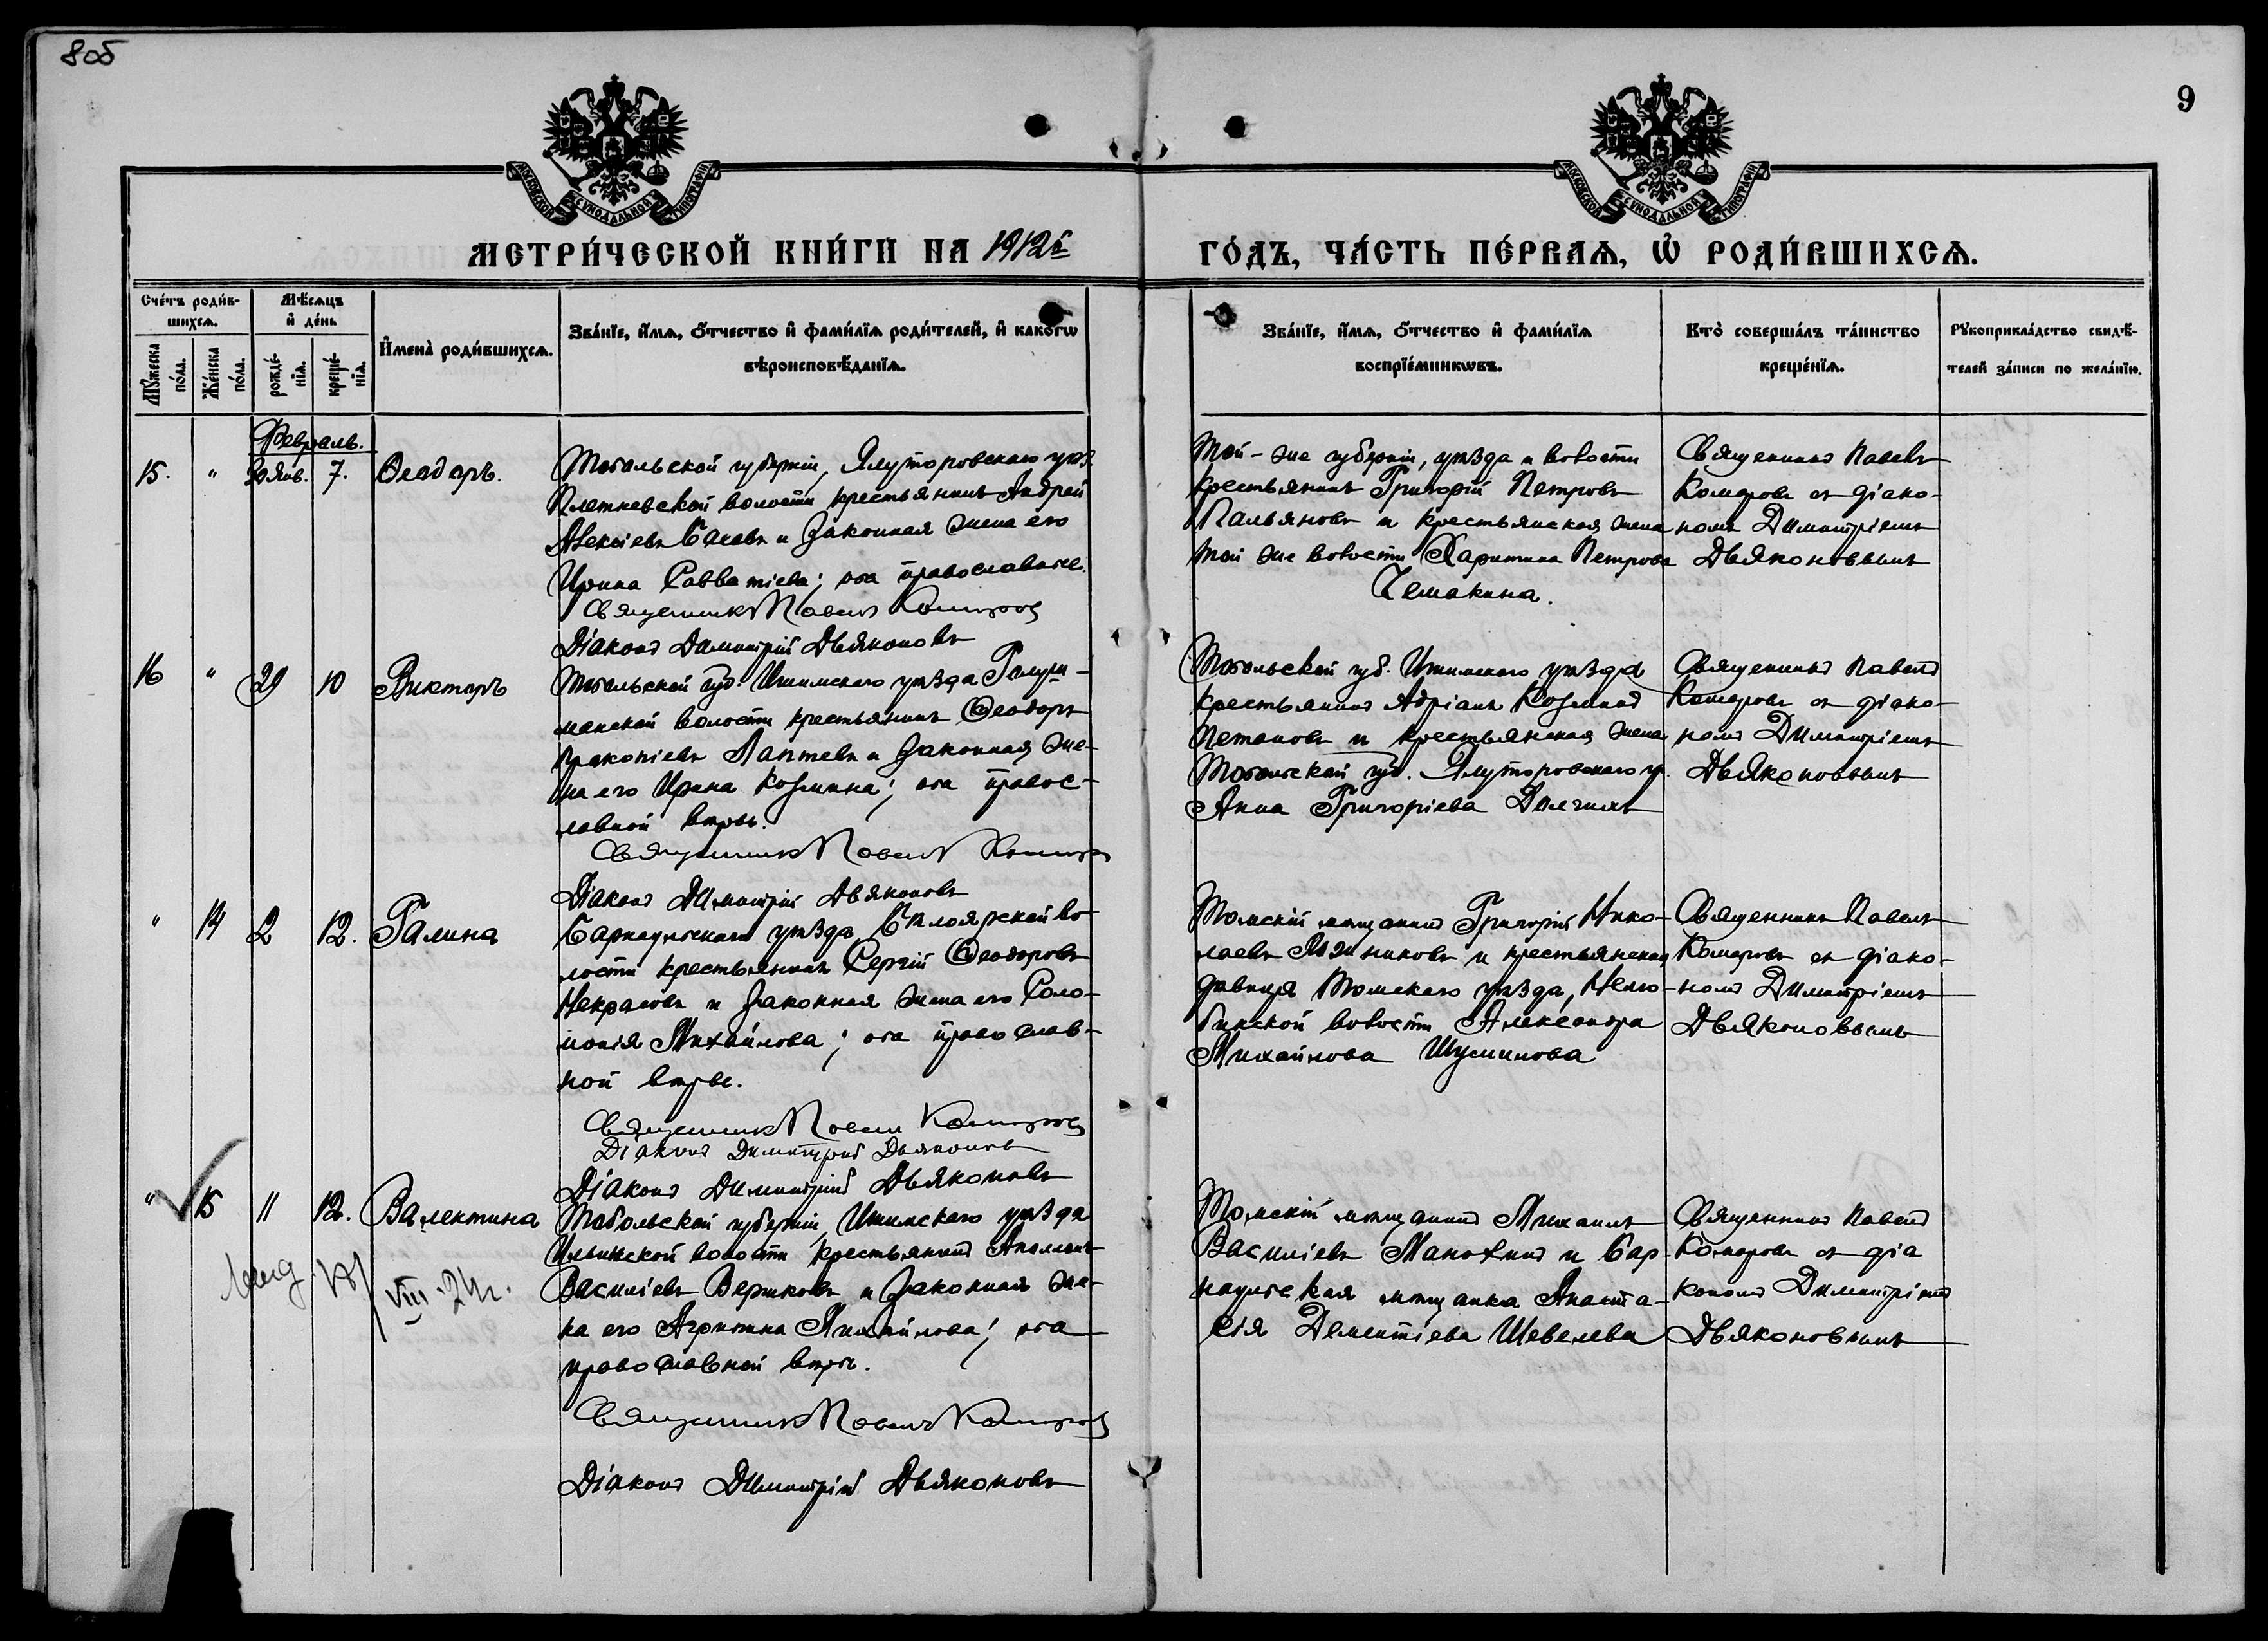 805
9
МОСКОВСКОЙ СѴНОДАЛЬНОЙ ТИПОГРАФІИ
МОСКОВСКОЙ СѴНОДАЛЬНОЙ ТИПОГРАФІИ
МЕТРИ́ЧЕСКОЙ КНИ́ГИ НА 1912й
ГО́ДЪ, ЧА́СТЬ ПЕ́РВАѦ, Ѡ҆ РОДИ́ВШИХСѦ.
Сче́тъ роди́вшихсѧ.
Мѣ́сѧцъ и҆ де́нь
И҆мена̀ роди́вшихсѧ.
Зва́нїе, и҆́мѧ, ѻ҆́тчество и҆ фами́лїѧ роди́телей, и҆ како́гѡ
вѣроисповѣ́данїѧ.
Мꙋ́жеска по́ла.
Же́нска по́ла.
рожде́нїѧ.
креще́нїѧ.
Зва́нїе, и҆́мѧ, ѻ҆́тчество и҆ фами́лїѧ
воспрїе́мникѡвъ.
Кто̀ соверша́лъ та́инство
креще́нїѧ.
Рꙋкоприкла́дство свидѣ́-
телей за́писи по жела́нїю.
Февраль.
15. " 30 Янв. 7. Ѳеодоръ.
Тобольской губерніи, Ялуторовскаго уѣз.
Плетневской волости крестьянинъ Андрей
Алексіевъ и законная жена его
Ирина Савватіева; оба православные.
Священникъ Павелъ Комаровъ
Діаконъ Димитрій Дьяконовъ
Той-же губерніи, уѣзда и волости
крестьянинъ Григорій Петровъ
Пальяновъ и крестьянская жена
той же волости Харитина Петрова
Чемакина.
Священникъ Павелъ
Комаровъ съ діако-
номъ Димитріемъ
Дьяконовымъ
16 " 29 10 Викторъ
Тобольской губ. Ишимскаго уѣзда
манской волости крестьянинъ Ѳеодоръ
Прокопіевъ Лаптевъ и законная же-
на его Ирина Козмина; оба правос-
лавной вѣры.
Священникъ Павелъ Комаровъ
Діаконъ Димитрій Дьяконовъ
Тобольской губ. Ишимскаго уѣзда
крестьянинъ Адріанъ Козминъ
и крестьянская жена
Тобольской губ. Ялуторовскаго у.
Анна Григоріева
Священникъ Павелъ
Комаровъ съ діако-
номъ Димитріемъ
Дьяконовымъ
" 14 2 12. Галина
Барнаульскаго уѣзда Бѣлоярской во-
лости крестьянинъ Сергій Ѳеодоровъ
Некрасовъ и законная жена его Соло-
монія Михайлова; оба православ-
ной вѣры.
Священникъ Павелъ Комаровъ
Діаконъ Димитрій Дьяконовъ
Діаконъ Димитрій Дьяконовъ
Томскій мѣщанинъ Григорій Нико-
лаевъ и крестьянская
дѣвица Томскаго уѣзда, Нелю-
бинской волости Александра
Михайлова Шумилова
Священникъ Павелъ
Комаровъ съ діако-
номъ Димитріемъ
Дьяконовымъ
" 15 11 12. Валентина
VIII.
Тобольской губерніи, Ишимскаго уѣзда
Ильинской волости крестьянинъ
Василіевъ и законная же-
на его Агрипина Михайлова; оба
православной вѣры.
Священникъ Павелъ Комаровъ
Діаконъ Димитрій Дьяконовъ
Томскій мѣщанинъ Михаилъ
Василіевъ Манохинъ и Бар-
наульская мѣщанка Анаста-
сія Дементіева Шевелева
Священникъ Павелъ
Комаровъ съ діа
кономъ Димитріемъ
Дьяконовымъ